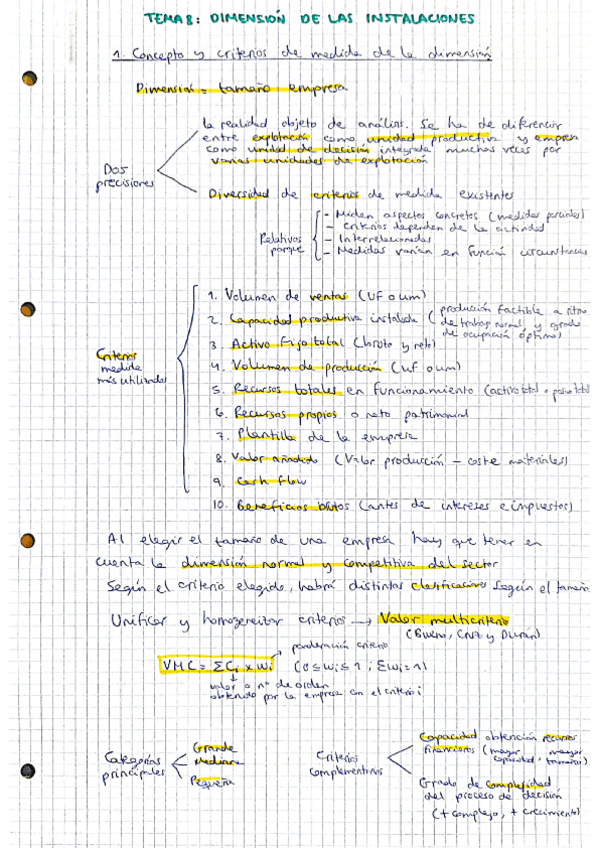 TEMA 8: DIMENSIÓN DE LAS INSTALACIONES
1. Concepto y criterios de medida de la dimensión
Dimensión = tamaño empresa
Dos precisiones
la realidad objeto de análisis. Se ha de diferenciar
entre explotación como unidad productiva y empresa
como unidad de decisión integrada muchas veces por
varias unidades de explotación
Diversidad de criterios de medida existentes
Relativos porque
- Miden aspectos concretos (medidas parciales)
- Criterios dependen de la actividad
- Interrelacionadas
- Medidas varían en función circunstancias
Criterios
medida
más utilizados
1. Volumen de ventas (UF o um)
2. Capacidad productiva instalada (producción factible a ritmo
de trabajo normal y grado
de ocupación óptimo)
3. Activo Fijo total (bruto y neto)
4. Volumen de producción (uf o um)
5. Recursos totales en funcionamiento (activo total o pasivo total
6. Recursos propios o neto patrimonial
7. Plantilla de la empresa
8. Valor añadido (Valor producción - coste materiales)
9. Cash flow
10. Beneficios brutos (antes de intereses e impuestos)
Al elegir el tamaño de una empresa hay que tener en
cuenta la dimensión normal y competitiva del sector
Según el criterio elegido, habrá distintas clasificaciones según el tamaño.
Unificar y homogeneizar criterios → Valor multicriterio
(Bueno, Cruz y Durán)
ponderación criterio
VMC = ΣCi x wi (0 ≤ wi ≤ 1 ; Σwi = 1)
valor o nº de orden
obtenido por la empresa con el criterio i
Categorías
principales
Grande
Mediana
Pequeña
Criterios
complementarios
Capacidad obtención recursos
financieros (mayor capacidad, mayor tamaño)
Grado de complejidad
del proceso de decisión
(+ complejo, + crecimiento)